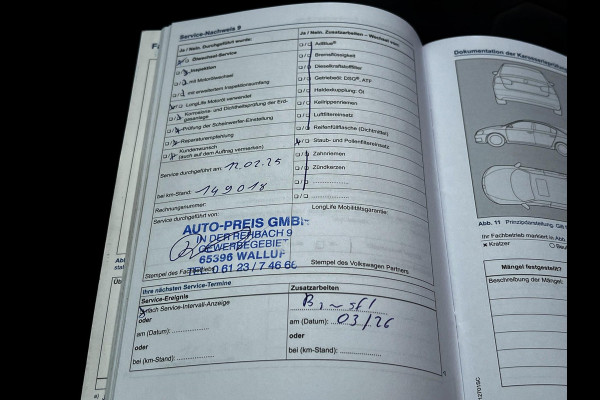 Service-Nachweis 9
Ja / Nein. Durchgeführt wurde:
Ölwechsel-Service
Inspektion
mit Motorölwechsel
mit erweitertem Inspektionsumfang
LongLife Motoröl verwendet
Korrosions- und Dichtheitsprüfung der Erd-
gasanlage
Prüfung der Scheinwerfer-Einstellung
Reparaturempfehlung
Kundenwunsch
(auch auf dem Auftrag vermerken)
Service durchgeführt am: 12.02.25
bei km-Stand: 149018
Rechnungsnummer:
Service durchgeführt von:
AUTO-PREIS GMBH
IN DER REHBACH 9
GEWERBEGEBIET
65396 WALLUF
Tel. 0 61 23 / 7 46 66
Stempel des Fachbetriebs
Ja / Nein. Zusatzarbeiten – Wechsel von:
AdBlue®
Bremsflüssigkeit
Dieselkraftstofffilter
Getriebeöl: DSG®, ATF
Haldexkupplung: Öl
Keilrippenriemen
Luftfiltereinsatz
Reifenfüllflasche (Dichtmittel)
Staub- und Pollenfiltereinsatz
Zahnriemen
Zündkerzen
LongLife Mobilitätsgarantie:
Stempel des Volkswagen Partners.
Ihre nächsten Service-Termine
Service-Ereignis
nach Service-Intervall-Anzeige
oder
am (Datum):
oder
bei (km-Stand):
Zusatzarbeiten
am (Datum): 03/26
oder
bei (km-Stand):
Dokumentation der Karosserieprüfung
Abb. 11 Prinzipdarstellung
Ihr Fachbetrieb markiert in Abb.
x Kratzer
Mängel festgestellt?
Beschreibung der Mängel.